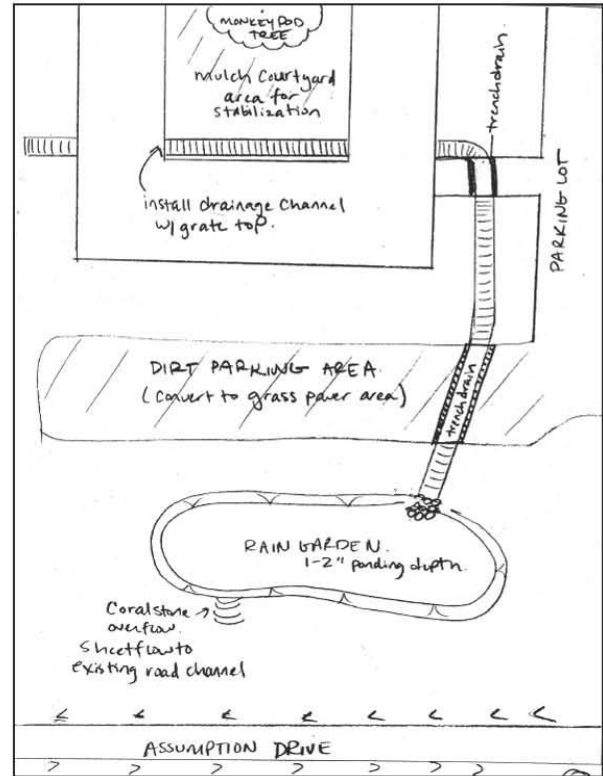 MONKEYPOD
TREE
mulch Courtyard
area for
stabilization
trenchdrain
install drainage Channel
w/ grate top.
PARKING LOT
DIRT PARKING AREA.
(Convert to grass paver area)
trenchdrain
RAIN GARDEN.
1-2" ponding depth.
Coralstone
overflow.
Sheetflow to
existing road channel
ASSUMPTION DRIVE